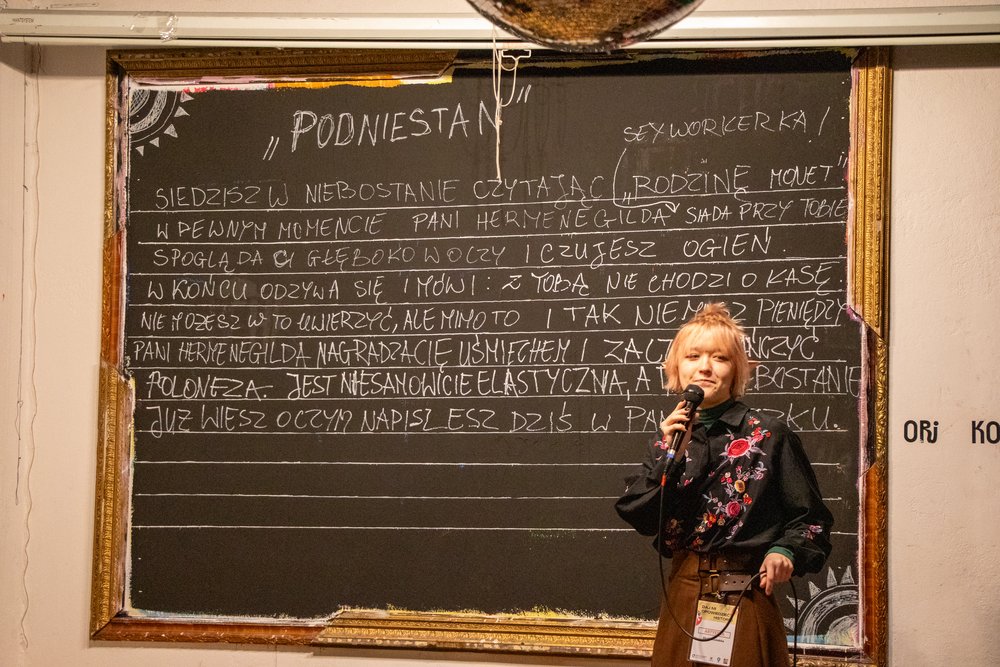 „PODNIESTAN"
SEXWORKERKA /
SIEDZISZ W NIEBOSTANIE CZYTAJĄC „RODZINĘ MONET"
W PEWNYM MOMENCIE PANI HERMENEGILDA SIADA PRZY TOBIE
SPOGLĄDA CI GŁĘBOKO W OCZY I CZUJESZ OGIEŃ.
W KOŃCU ODZYWA SIĘ I MÓWI: Z TOBĄ NIE CHODZI O KASĘ
NIE MOŻESZ W TO UWIERZYĆ, ALE MIMO TO I TAK NIE MASZ PIENIĘDZY
PANI HERMENEGILDA NAGRADZA CIĘ UŚMIECHEM I
POLONEZA. JEST NIESAMOWICIE ELASTYCZNA, A
JUŻ WIESZ O CZYM NAPISZESZ DZIŚ W
ORJ KO